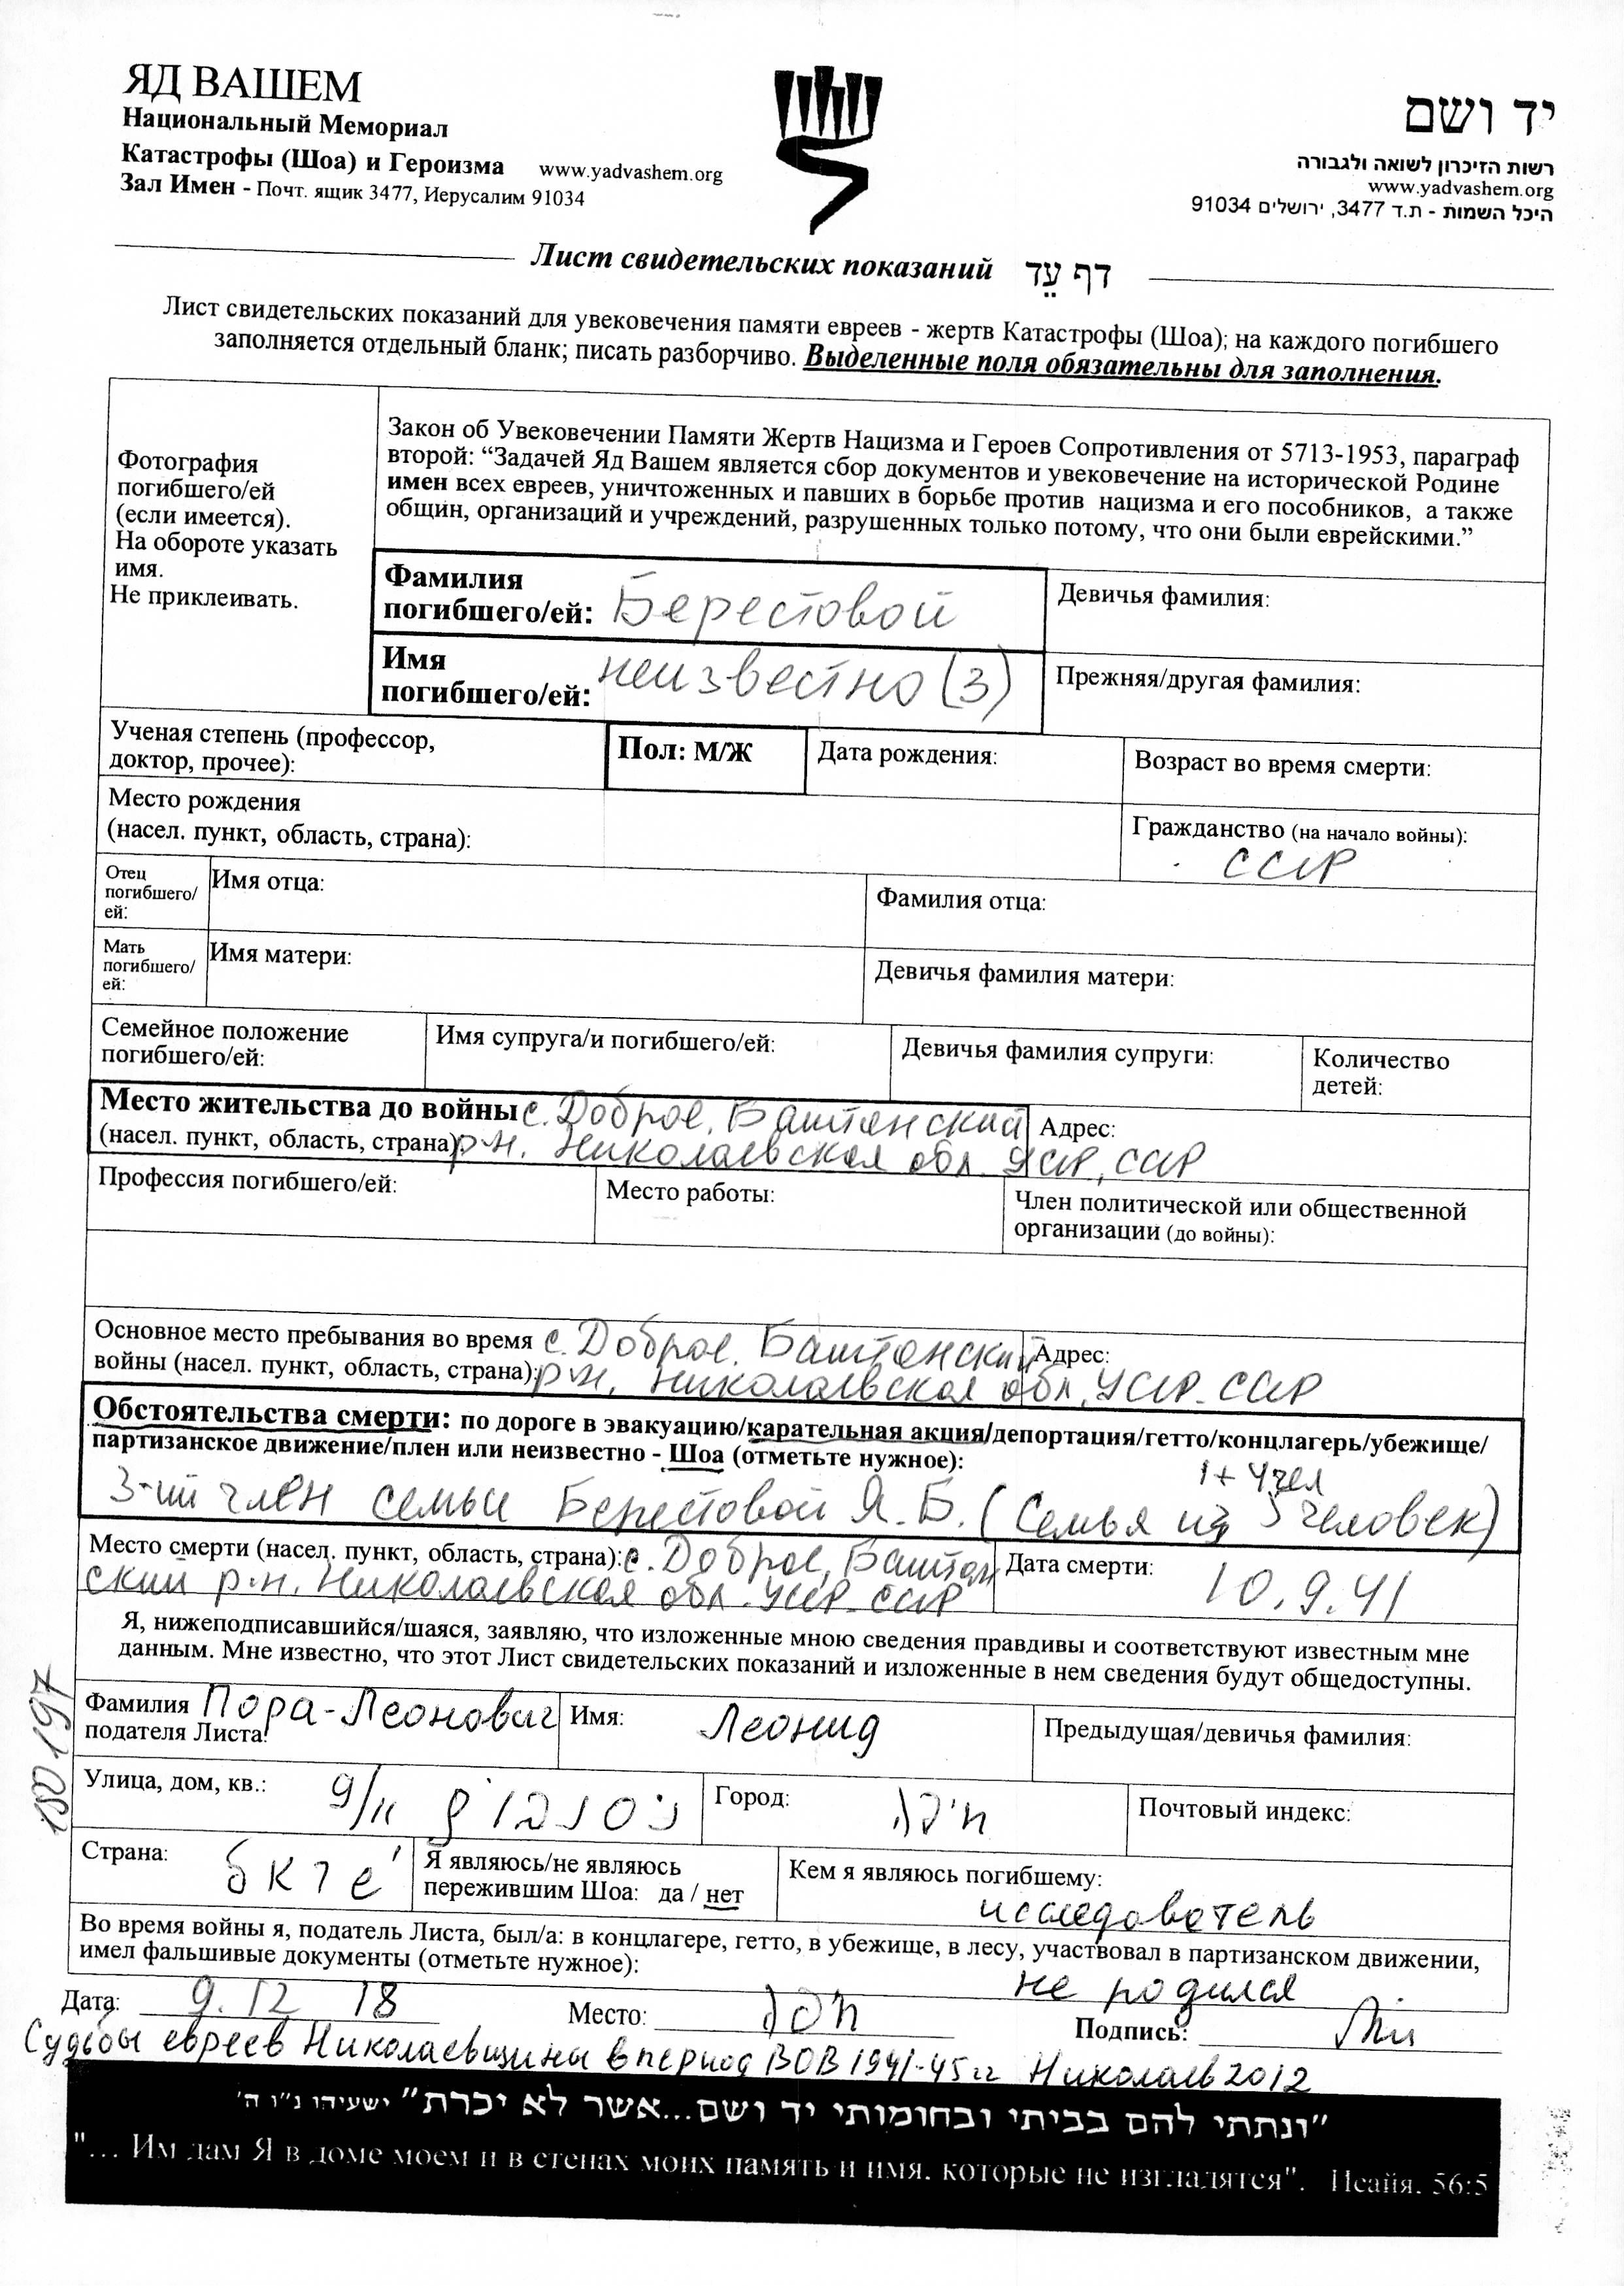 ЯД ВАШЕМ
Национальный Мемориал
Катастрофы (Шоа) и Героизма www.yadvashem.org
Зал Имен - Почт. ящик 3477, Иерусалим 91034
יד ושם
רשות הזיכרון לשואה ולגבורה
www.yadvashem.org
היכל השמות - ת.ד 3477, ירושלים 91034
Лист свидетельских показаний דף עֵד
Лист свидетельских показаний для увековечения памяти евреев - жертв Катастрофы (Шоа); на каждого погибшего
заполняется отдельный бланк; писать разборчиво. Выделенные поля обязательны для заполнения.
Фотография
погибшего/ей
(если имеется).
На обороте указать
имя.
Не приклеивать.
Закон об Увековечении Памяти Жертв Нацизма и Героев Сопротивления от 5713-1953, параграф
второй: “Задачей Яд Вашем является сбор документов и увековечение на исторической Родине
имен всех евреев, уничтоженных и павших в борьбе против нацизма и его пособников, а также
общин, организаций и учреждений, разрушенных только потому, что они были еврейскими.”
Фамилия
погибшего/ей: Берестовой
Девичья фамилия:
Имя
погибшего/ей: неизвестно (3)
Прежняя/другая фамилия:
Ученая степень (профессор,
доктор, прочее):
Пол: М/Ж
Дата рождения:
Возраст во время смерти:
Место рождения
(насел. пункт, область, страна):
Гражданство (на начало войны):
СССР
Отец
погибшего/
ей:
Имя отца:
Фамилия отца:
Мать
погибшего/
ей:
Имя матери:
Девичья фамилия матери:
Семейное положение
погибшего/ей:
Имя супруга/и погибшего/ей:
Девичья фамилия супруги:
Количество
детей:
Место жительства до войны с. Доброе, Баштанский
(насел. пункт, область, страна): р-н. Николаевская обл. УССР, СССР
Адрес:
Профессия погибшего/ей:
Место работы:
Член политической или общественной
организации (до войны):
Основное место пребывания во время с. Доброе, Баштанский
войны (насел. пункт, область, страна): р-н, Николаевская обл, УССР-СССР
Адрес:
Обстоятельства смерти: по дороге в эвакуацию/карательная акция/депортация/гетто/концлагерь/убежище/
партизанское движение/плен или неизвестно - Шоа (отметьте нужное):
1 + 4 чел
3-ий член семьи Берестовой Я. Б. (Семья из 5 человек)
Место смерти (насел. пункт, область, страна): с. Доброе, Баштан
ский р-н. Николаевская обл. УССР-СССР
Дата смерти: 10.9.41
Я, нижеподписавшийся/шаяся, заявляю, что изложенные мною сведения правдивы и соответствуют известным мне
данным. Мне известно, что этот Лист свидетельских показаний и изложенные в нем сведения будут общедоступны.
180197
Фамилия Пора-Леонович
подателя Листа:
Имя: Леонид
Предыдущая/девичья фамилия:
Улица, дом, кв.: 9/11
Город: חיפה
Почтовый индекс:
Страна:
Я являюсь/не являюсь
пережившим Шоа: да / нет
Кем я являюсь погибшему:
исследователь
Во время войны я, податель Листа, был/а: в концлагере, гетто, в убежище, в лесу, участвовал в партизанском движении,
имел фальшивые документы (отметьте нужное):
не родился
Дата: 9. 12 18
Место:
Подпись:
Судьбы евреев Николаевщины в период ВОВ 1941-45 гг Николаев 2012
"ונתתי להם בביתי ובחומותי יד ושם...אשר לא יכרת" ישעיהו נ"ו ה'
"... Им дам Я в доме моем и в стенах моих память и имя, которые не изгладятся". Исайя, 56:5